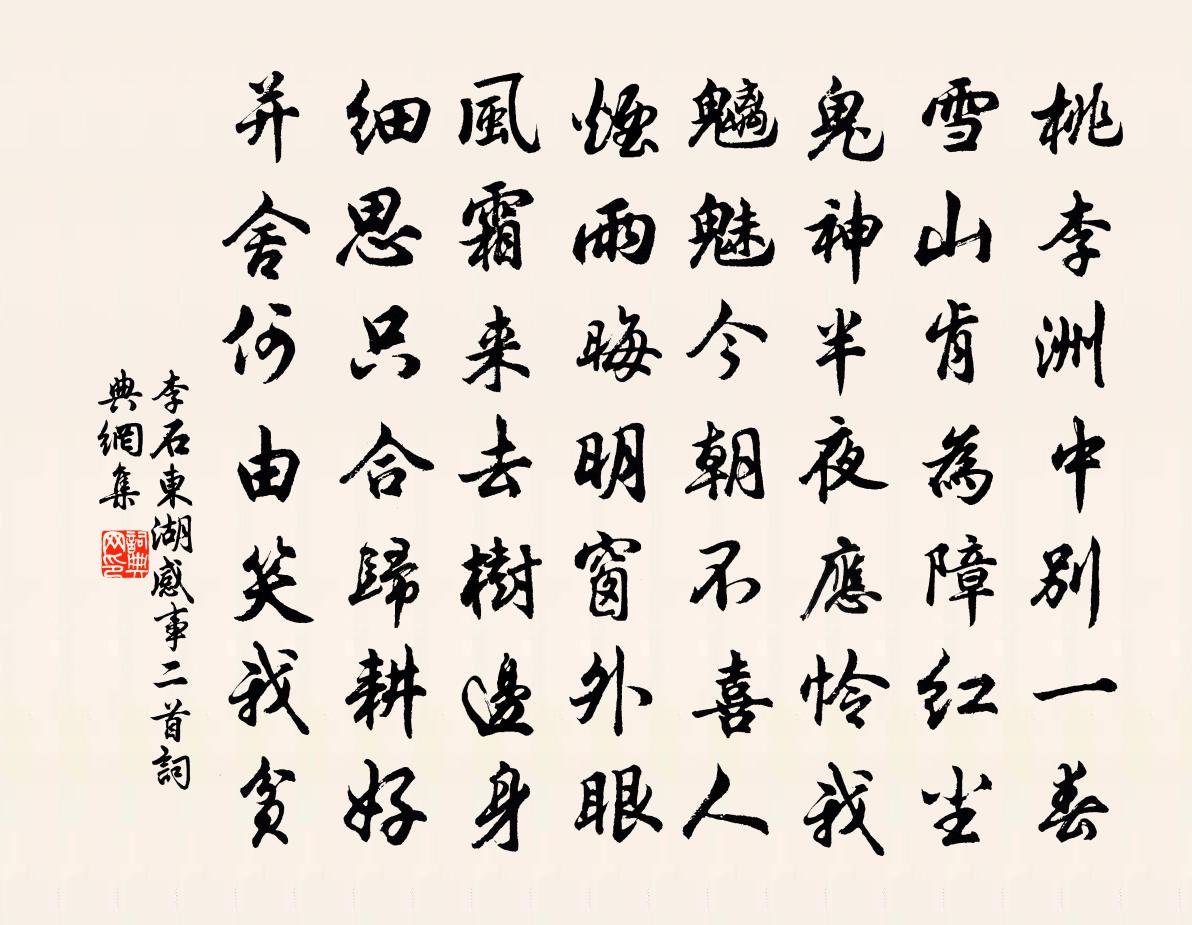 桃李洲中别一春
雪山肯為障红尘
鬼神半夜應怜我
魑魅今朝不喜人
煙雨晦明窗外眼
風霜来去樹邊身
细思只合歸耕好
并舍何由笑我贫
李石東湖感事二首詞
典網集
詞典
网印